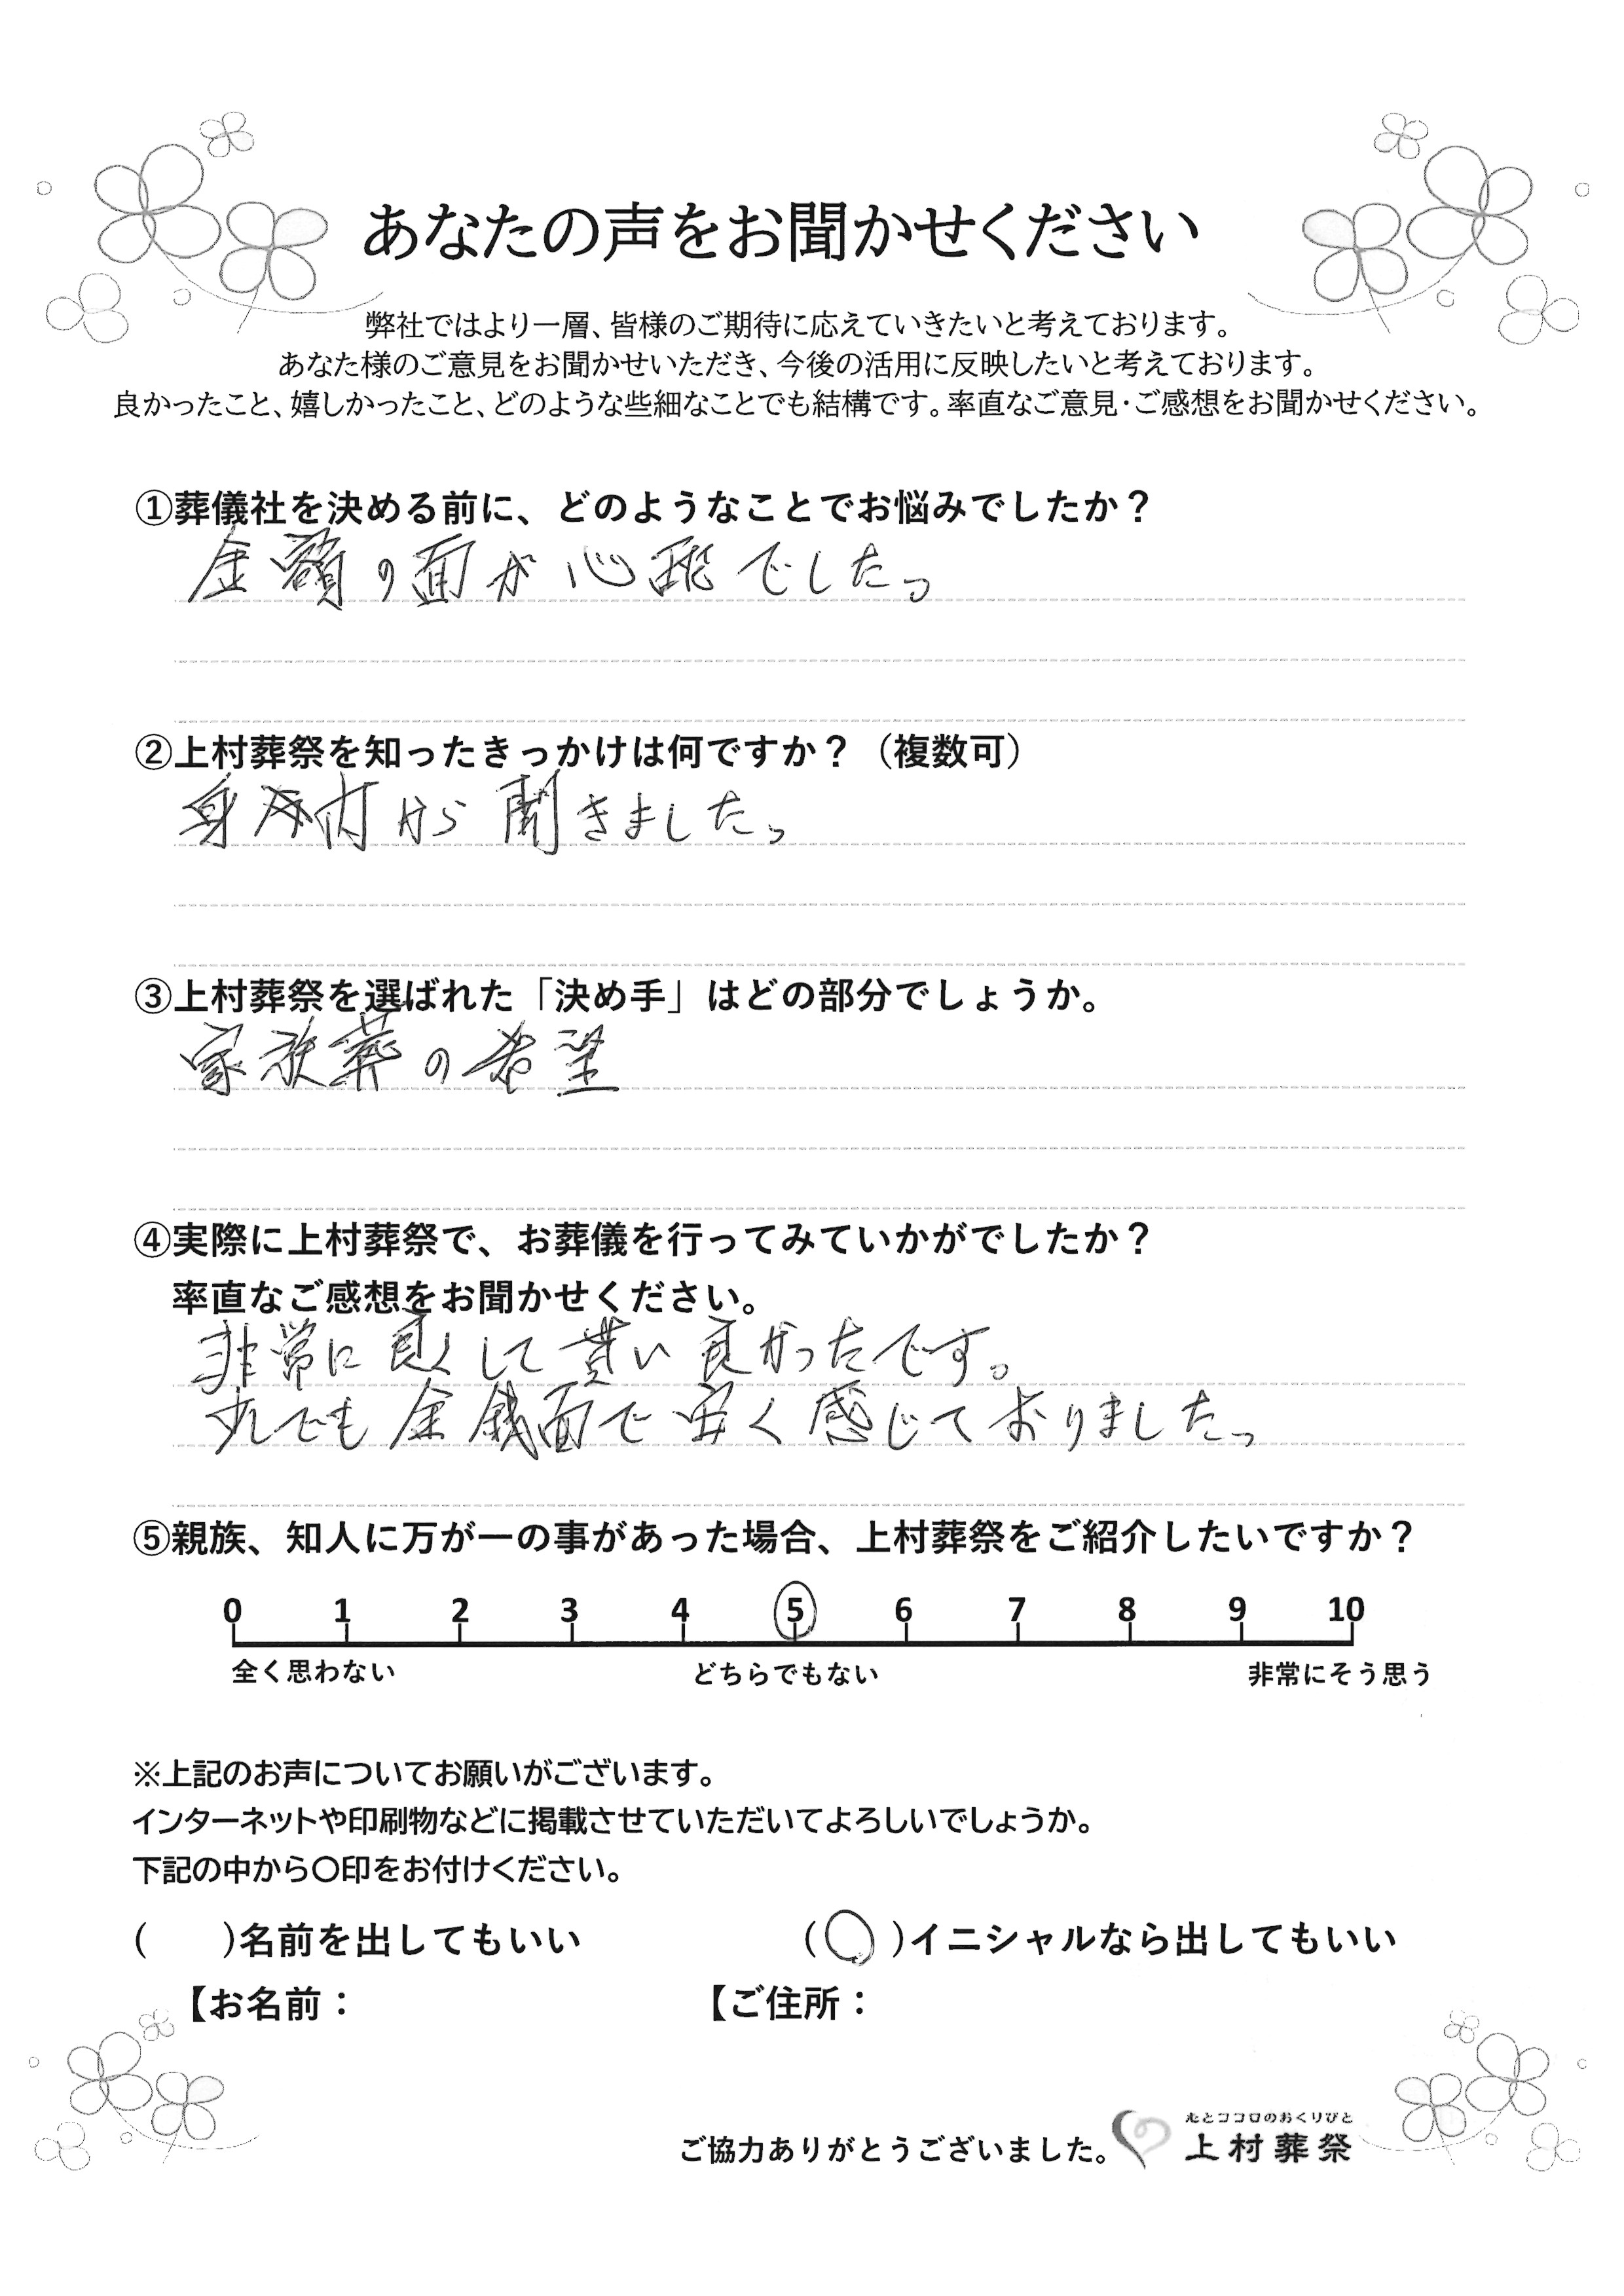 あなたの声をお聞かせください
弊社ではより一層、皆様のご期待に応えていきたいと考えております。
あなた様のご意見をお聞かせいただき、今後の活用に反映したいと考えております。
良かったこと、嬉しかったこと、どのような些細なことでも結構です。率直なご意見・ご感想をお聞かせください。
①葬儀社を決める前に、どのようなことでお悩みでしたか？
金額の面が心配でした。
②上村葬祭を知ったきっかけは何ですか？（複数可）
身内から聞きました。
③上村葬祭を選ばれた「決め手」はどの部分でしょうか。
家族葬の希望
④実際に上村葬祭で、お葬儀を行ってみていかがでしたか？
率直なご感想をお聞かせください。
非常に良くして貰い良かったです。
でも金銭面で安く感じておりました。
⑤親族、知人に万が一の事があった場合、上村葬祭をご紹介したいですか？
0 1 2 3 4 5 6 7 8 9 10
全く思わない どちらでもない 非常にそう思う
※上記のお声についてお願いがございます。
インターネットや印刷物などに掲載させていただいてよろしいでしょうか。
下記の中から〇印をお付けください。
(　　)名前を出してもいい (〇)イニシャルなら出してもいい
【お名前： 【ご住所：
とココロのおくりびと
ご協力ありがとうございました。 上村葬祭